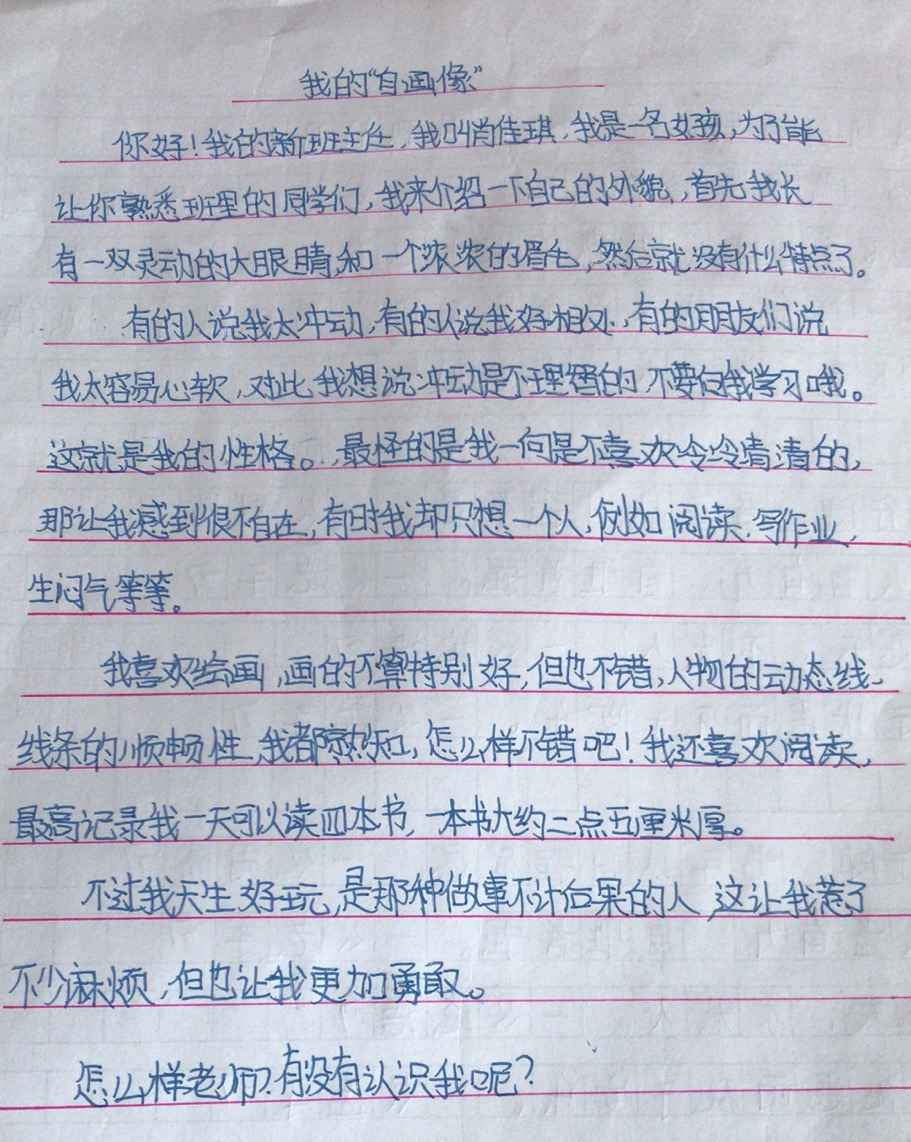 我的“自画像”
你好！我的新班主任，我叫肖佳琪，我是一名女孩，为了能
让你熟悉班里的同学们，我来介绍一下自己的外貌，首先我长
有一双灵动的大眼睛，和一个浓浓的眉毛，然后就没有什么特点了。
有的人说我太冲动，有的人说我好相处，有的朋友们说
我太容易心软，对此，我想说冲动是不理智的，不要向我学习哦。
这就是我的性格。最怪的是我一向是不喜欢冷冷清清的，
那让我感到很不自在，有时我却只想一个人，例如阅读、写作业，
生闷气等等。
我喜欢绘画，画的不算特别好，但也不错，人物的动态线、
线条的顺畅性，我都熟知，怎么样不错吧！我还喜欢阅读，
最高记录我一天可以读四本书，一本书大约二点五厘米厚。
不过我天生好玩，是那种做事不计后果的人，这让我惹了
不少麻烦，但也让我更加勇敢。
怎么样老师？有没有认识我呢？